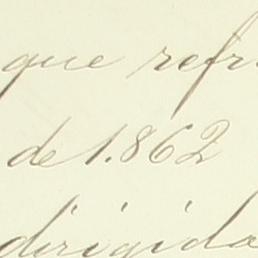 que refr
de 1.862
dirigida